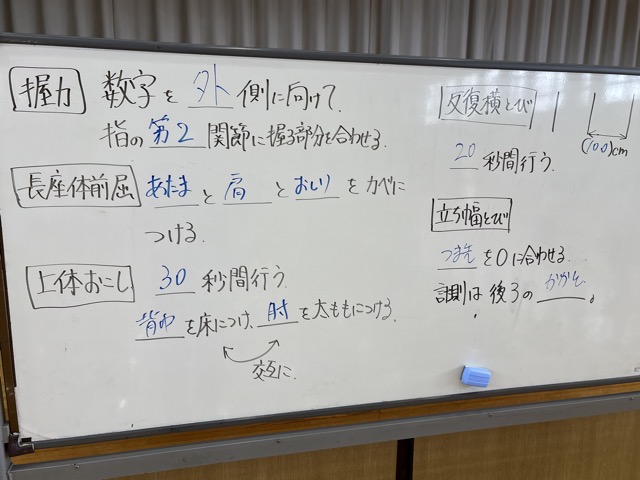 握力 数字を 外 側に向けて、
指の 第2 関節に握る部分を合わせる。
長座体前屈 あたま と 肩 と おしり を カベに
つける。
上体おこし 30 秒間行う。
背中 を床につけ、肘 を太ももにつける。
交互に
反復横とび
(100)cm
20 秒間行う。
立ち幅とび
つま先 を0に合わせる。
計測は 後ろの かかと。